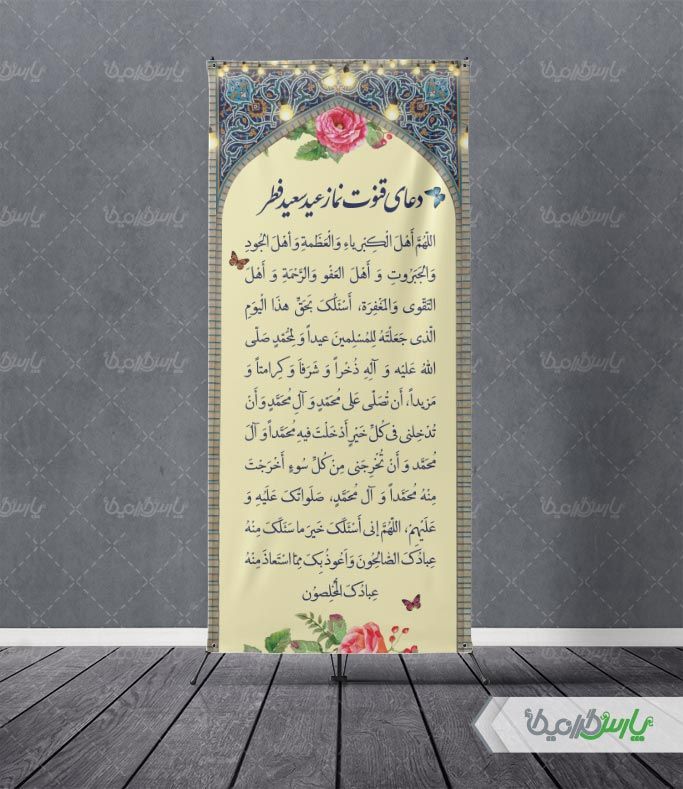 دعای قنوت نماز عید سعید فطر
اللهُمَّ أَهْلَ الْكِبْرِياءِ وَالْعَظَمَةِ وَ أَهْلَ الْجُودِ
وَالْجَبَرُوتِ وَ أَهْلَ الْعَفْوِ وَالرَّحْمَةِ وَ أَهْلَ
التَّقْوى وَالْمَغْفِرَةِ، أَسْئَلُكَ بَحَقِّ هذَا الْيَوْمِ
الَّذى جَعَلْتَهُ لِلْمُسْلِمينَ عيداً وَ لِمُحَمَّدٍ صَلّى
اللهُ عَلَيْه وَ آلِهِ ذُخْراً وَ شَرَفاً وَ كِرامتاً وَ
مَزيداً، أَن تُصَلّى عَلى مُحَمَّدٍ وَ آلِ مُحَمَّدٍ وَ أَنْ
تُدْخِلَنى فى كُلِّ خَيْرٍ أَدْخَلْتَ فيهِ مُحَمَّداً وَ آلَ
مُحَمَّد وَ أَنْ تُخْرِجَنى مِنْ كُلِّ سُوءٍ أَخْرَجْتَ
مِنْهُ مُحَمَّداً وَ آل مُحَمَّدٍ، صَلَواتُكَ عَلَيْهِ وَ
عَلَيْهِمْ، اللّهُمَّ إنى أَسْئَلُكَ خَيرَ ما سَئَلَكَ مِنْهُ
عِبادُكَ الصّالِحُونَ وَ اَعُوذُ بِكَ مِمَّا اسْتَعاذَ مِنْهُ
عِبادُكَ الْمُخْلِصوْن
پارس گرافیک